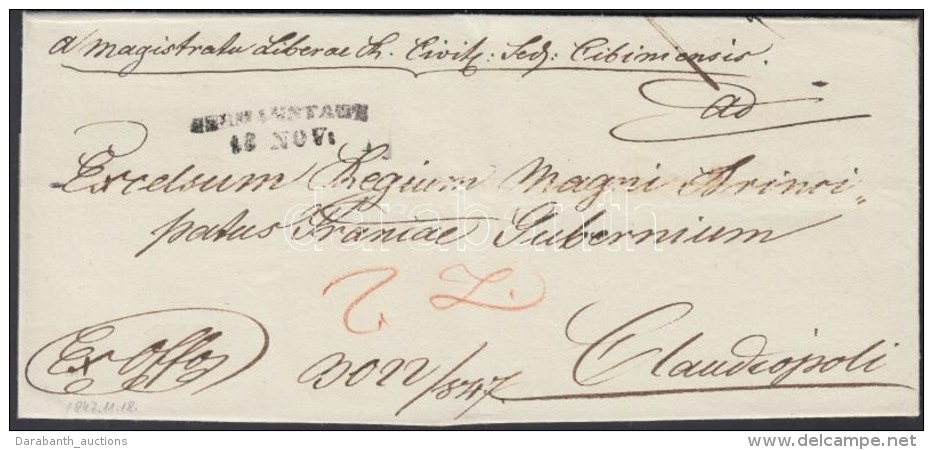 a Magistratu Liberae R. Civit: Sed: Cibiniensis.
ad
HERMANSTADT
18 NOV:
Excelsum Regium Magni Princi„
patus Traniae Gubernium
darabanth
Z.
Ex Offo
/847
Claudiopoli
1847.11.18.
Darabanth_auctions
www.delcampe.net